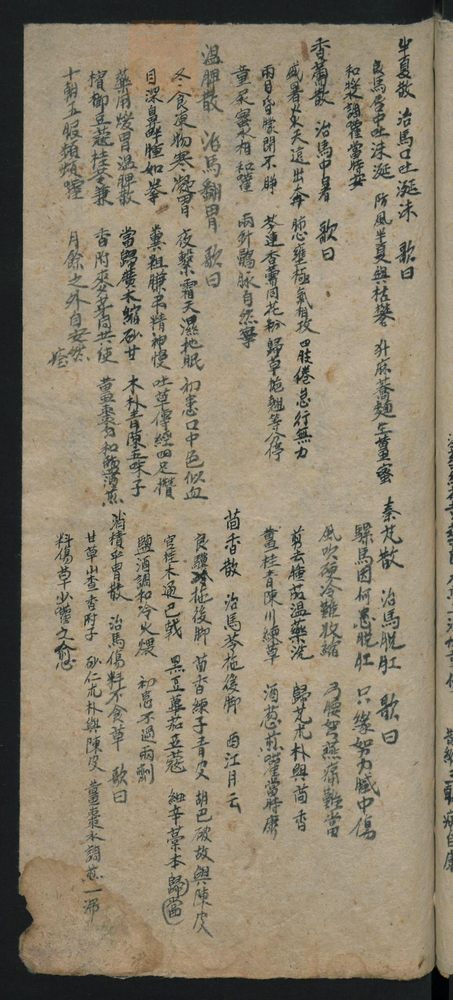 半夏散 治馬口吐涎沫 歌曰
良馬唇中吐沫涎 防風半夏與枯礬 升麻蕎麵生薑蜜
和漿調灌當時安
香薷散 治馬中暑 歌曰
盛暑炎天遠出奔 肺心壅極氣相攻 四肢倦怠行無力
兩目昏朦閉不睜 芩連香薷同花粉 歸草梔翹等分停
童尿蜜相和灌 兩針鶻脉自然寧
溫脾散 治馬翻胃 歌曰
冬食硬物寒凝胃 夜繫霜天濕地眠 初患口中色似血
目深鼻浮腫如拳 糞粗膁吊精神慢 吐草傳經四足攢
藥用煖胃溫脾散 當歸廣木縮砂甘 木朴青陳五味子
檳榔豆蔻桂苓兼 香附來芎共使 薑棗勻和酸酒煎
十朝五服頻頻灌 月餘之外自安然
痊
秦艽散 治馬脫肛 歌曰
騾馬因何患脫肛 只緣努力臟中傷
風吹硬冷難收縮 弓腰努燕痛難當
剪去瘀溫藥洗 歸艽朮朴與茴香
薑桂青陳川練草 酒葱煎灌當時康
茴香散 治馬苓拖後脚 西江月云
良驥冷拖後脚 茴香練子青皮 胡巴破故與陳皮
官桂木通巴戟 黑豆蓽茄豆蔻 細辛藁本歸當
鹽酒調和冷火煖 初患不過兩劑
消積平胃散 治馬傷料不食草 歌曰
甘草山查香附子 砂仁朮朴與陳皮 薑棗水調煎一沸
料傷草少灌之愈